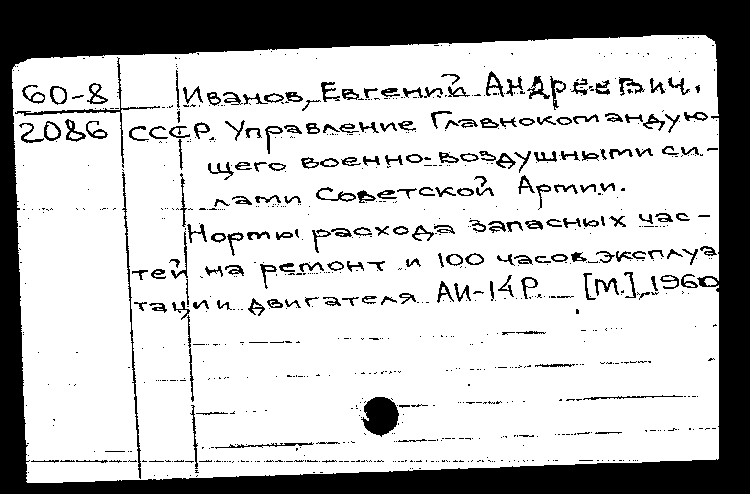 60-8
2086
Иванов, Евгений Андреевич.
СССР. Управление Главнокомандую-
щего военно-воздушными си-
лами Советской Армии.
Нормы расхода запасных час-
тей на ремонт и 100 часов эксплуа
тации двигателя АИ-14Р. [М.], 1960.